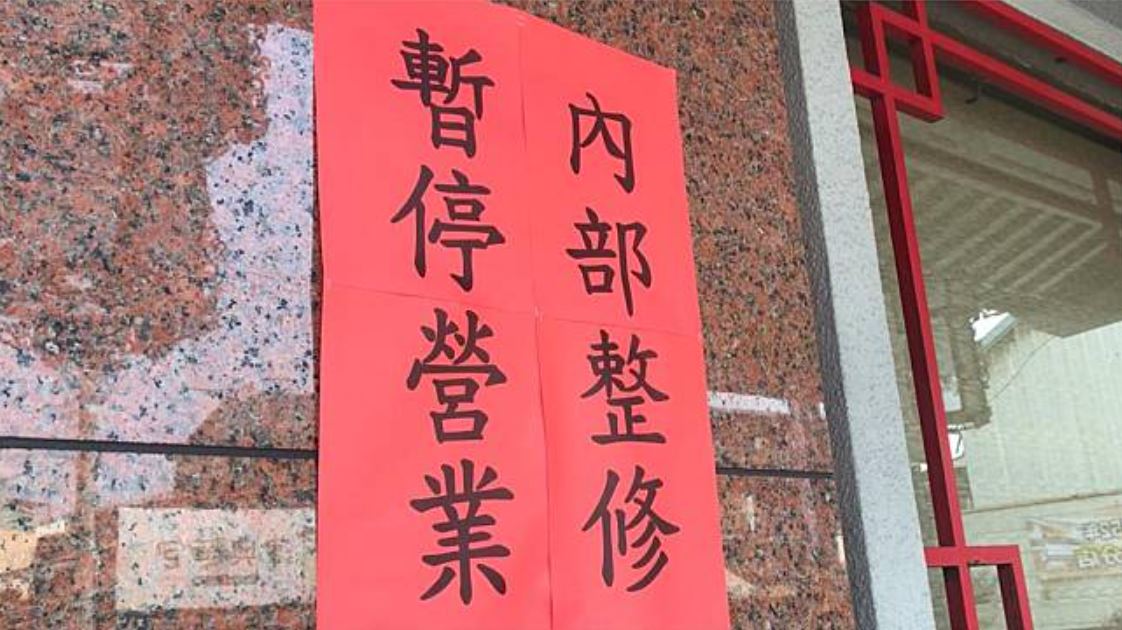 內部整修
暫停營業